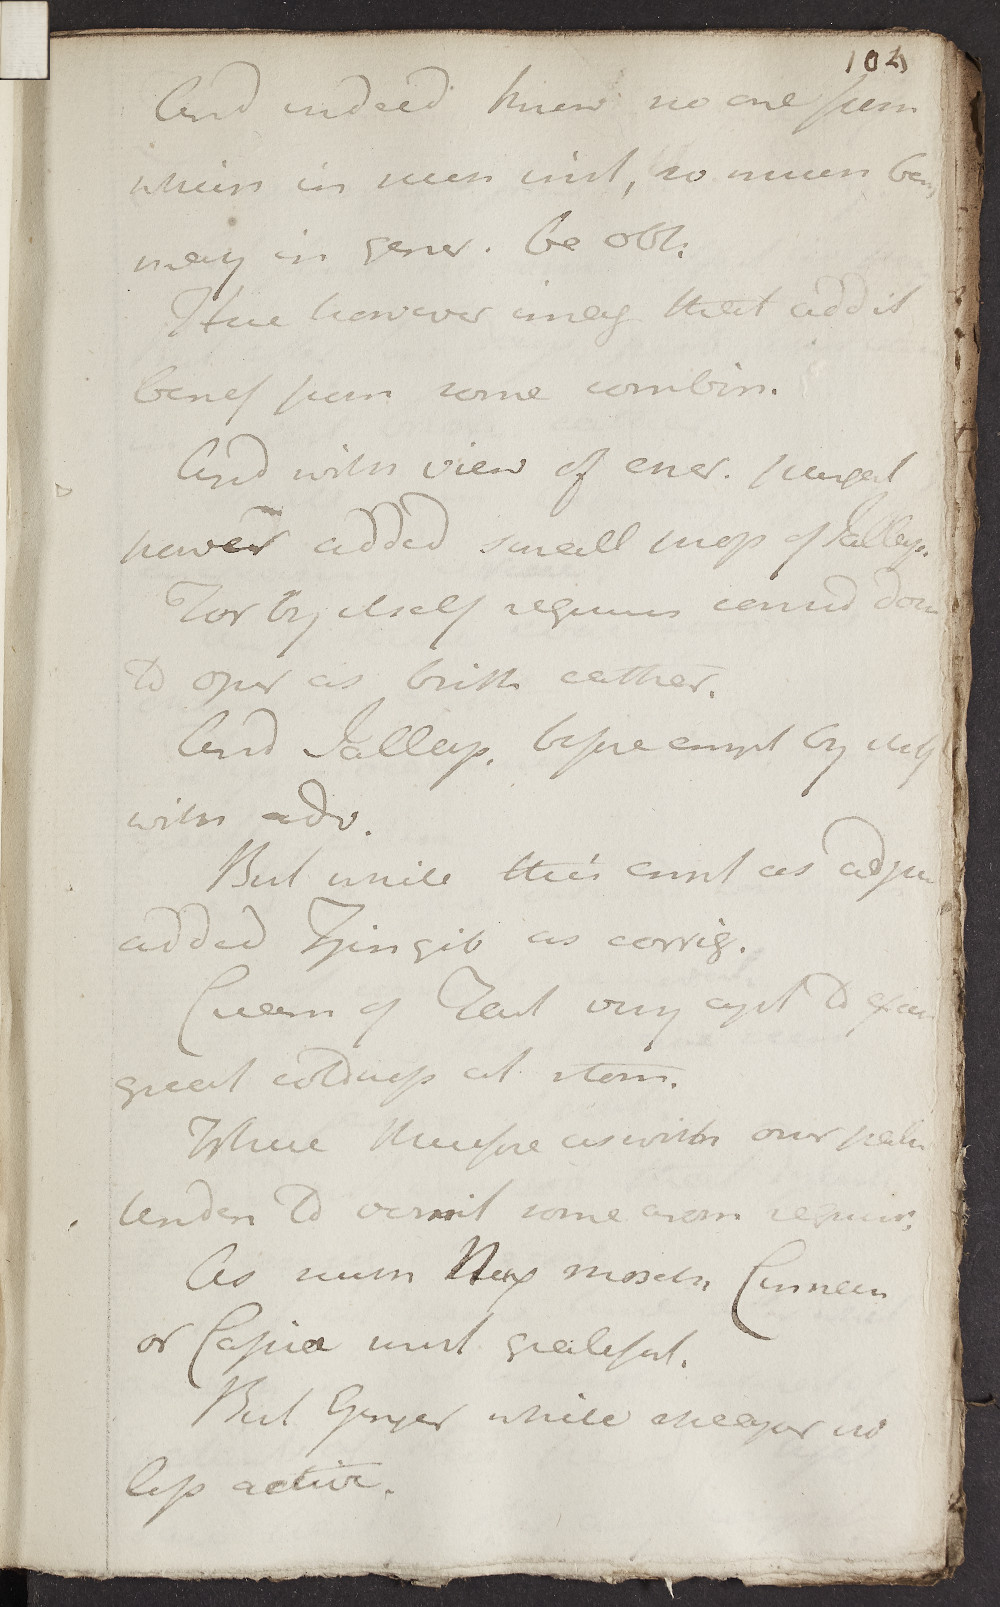 104
And indeed know no one from
which in such inst, so much ben
may in gener. be obt.
Here however imag that addit
benef from some combin.
And with view of encr. purgat
power added small prop of Jallap.
For by itself requires consid dose
to oper as brisk cathar.
And Jallap. before empt by itself
with adv.
But while this empt as adju
added Zingib as corrig.
Cream of Tart very apt to
great coldness at stom.
Where therefore as with our patie
tenden to vomit some arom requir.
As such Nux mosch. Cinnam
or Cassia most grateful.
But Ginger while cheaper no
less active.